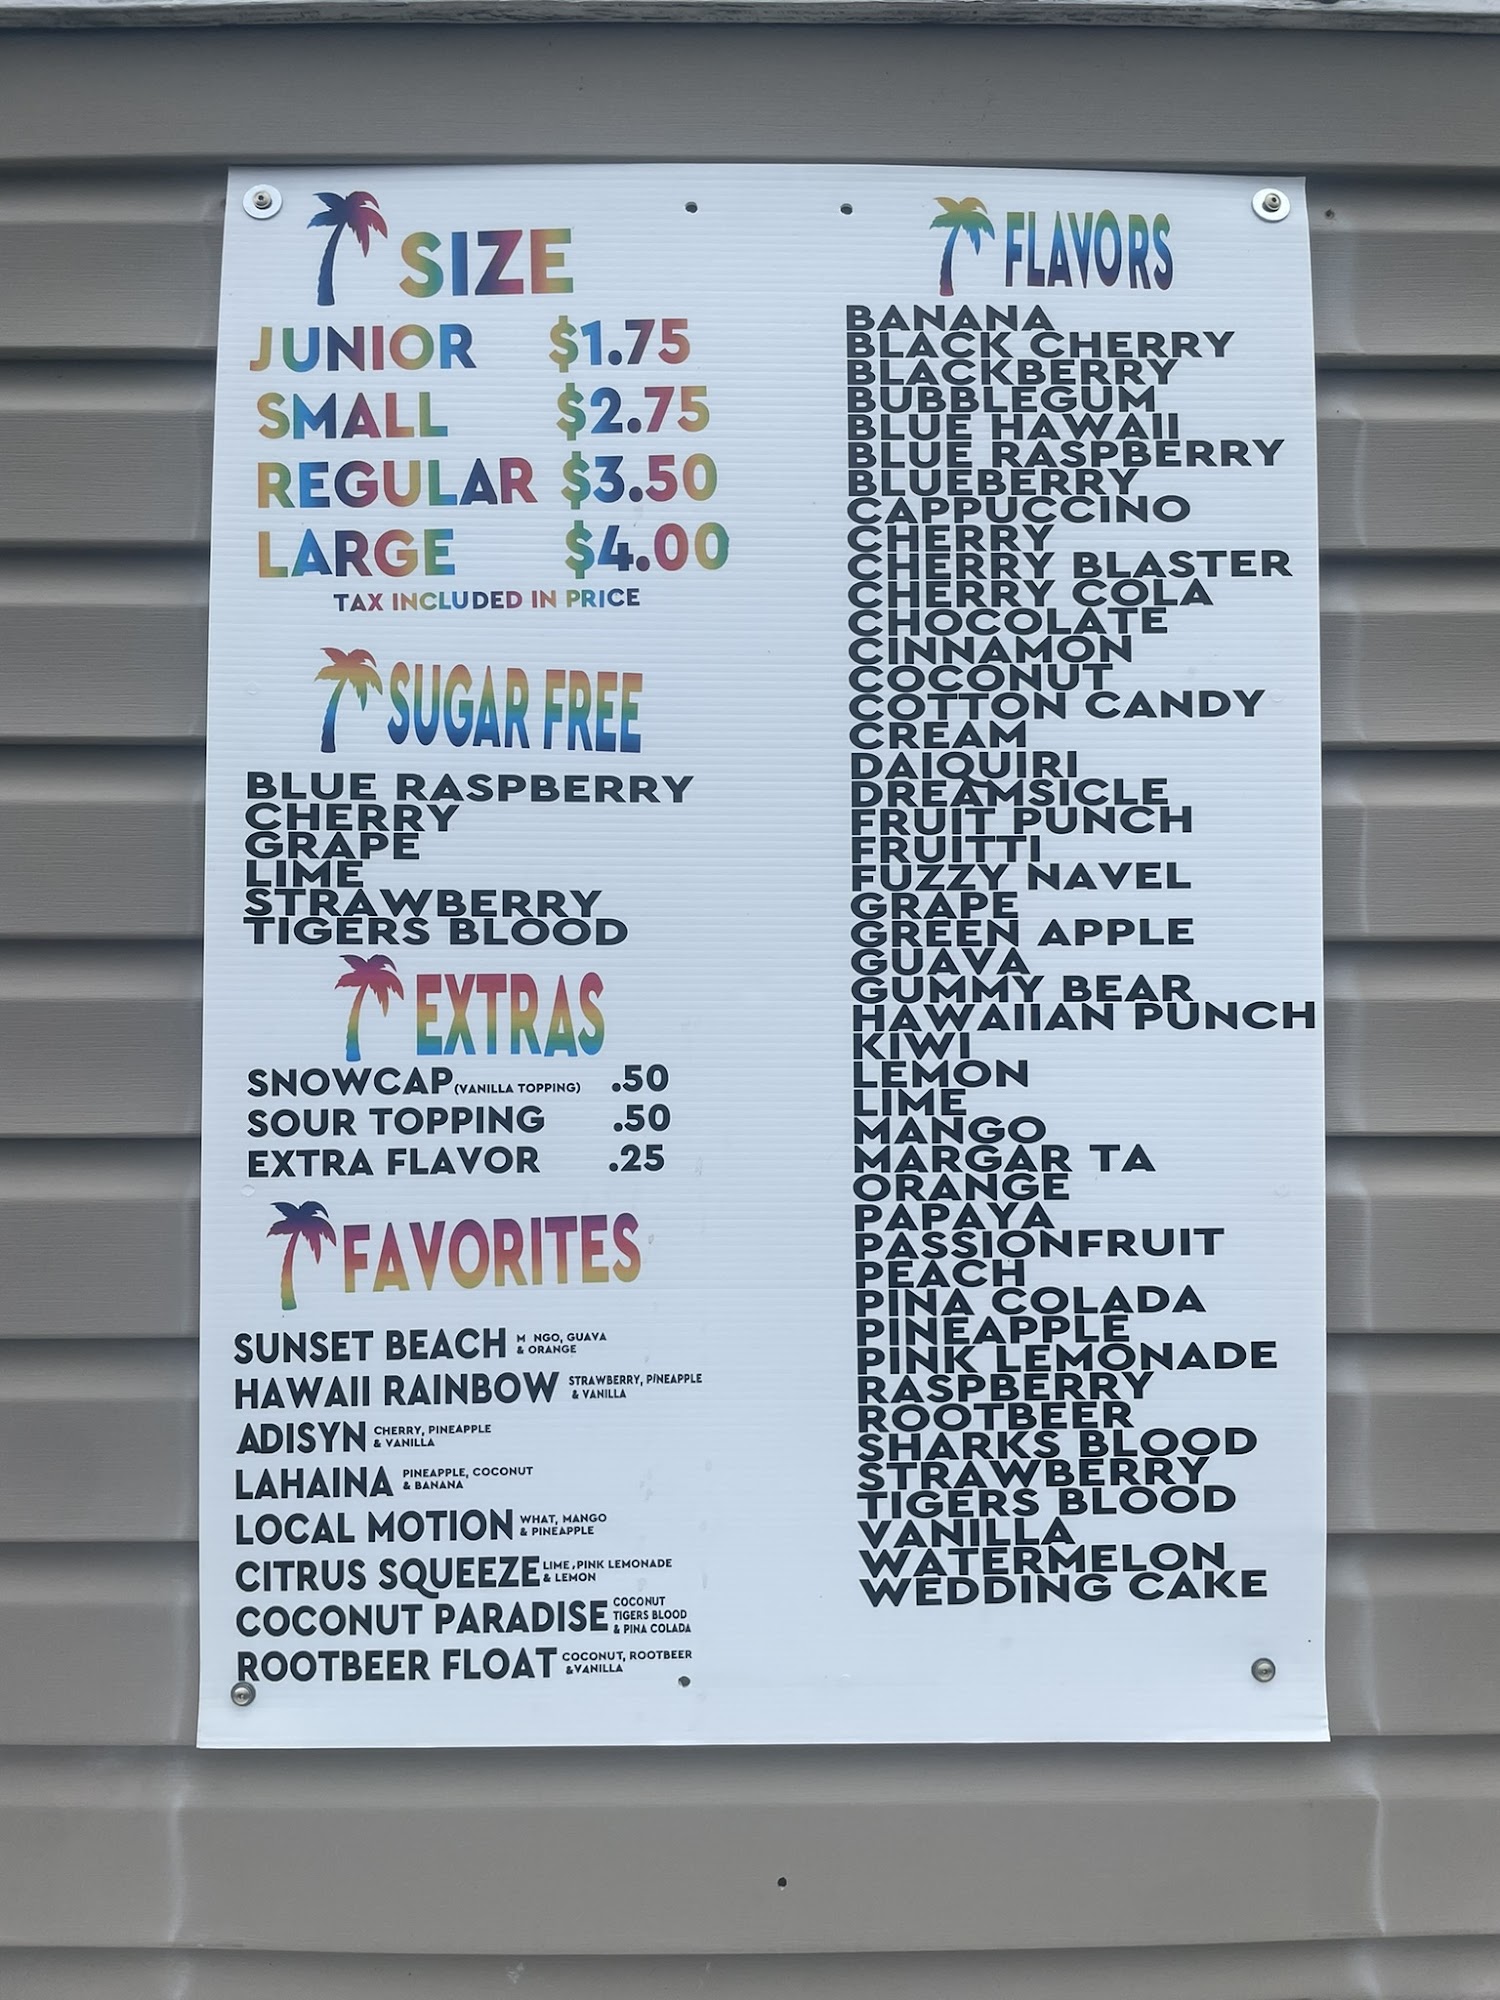 SIZE
JUNIOR $1.75
SMALL $2.75
REGULAR $3.50
LARGE $4.00
TAX INCLUDED IN PRICE
SUGAR FREE
BLUE RASPBERRY
CHERRY
GRAPE
LIME
STRAWBERRY
TIGERS BLOOD
EXTRAS
SNOWCAP (VANILLA TOPPING) .50
SOUR TOPPING .50
EXTRA FLAVOR .25
FAVORITES
SUNSET BEACH M NGO, GUAVA
& ORANGE
HAWAII RAINBOW STRAWBERRY, PINEAPPLE
& VANILLA
ADISYN CHERRY, PINEAPPLE
& VANILLA
LAHAINA PINEAPPLE, COCONUT
& BANANA
LOCAL MOTION WHAT, MANGO
& PINEAPPLE
CITRUS SQUEEZE LIME, PINK LEMONADE
& LEMON
COCONUT PARADISE COCONUT
TIGERS BLOOD
& PINA COLADA
ROOTBEER FLOAT COCONUT, ROOTBEER
&VANILLA
FLAVORS
BANANA
BLACK CHERRY
BLACKBERRY
BUBBLEGUM
BLUE HAWAII
BLUE RASPBERRY
BLUEBERRY
CAPPUCCINO
CHERRY
CHERRY BLASTER
CHERRY COLA
CHOCOLATE
CINNAMON
COCONUT
COTTON CANDY
CREAM
DAIQUIRI
DREAMSICLE
FRUIT PUNCH
FRUITTI
FUZZY NAVEL
GRAPE
GREEN APPLE
GUAVA
GUMMY BEAR
HAWAIIAN PUNCH
KIWI
LEMON
LIME
MANGO
MARGAR TA
ORANGE
PAPAYA
PASSIONFRUIT
PEACH
PINA COLADA
PINEAPPLE
PINK LEMONADE
RASPBERRY
ROOTBEER
SHARKS BLOOD
STRAWBERRY
TIGERS BLOOD
VANILLA
WATERMELON
WEDDING CAKE